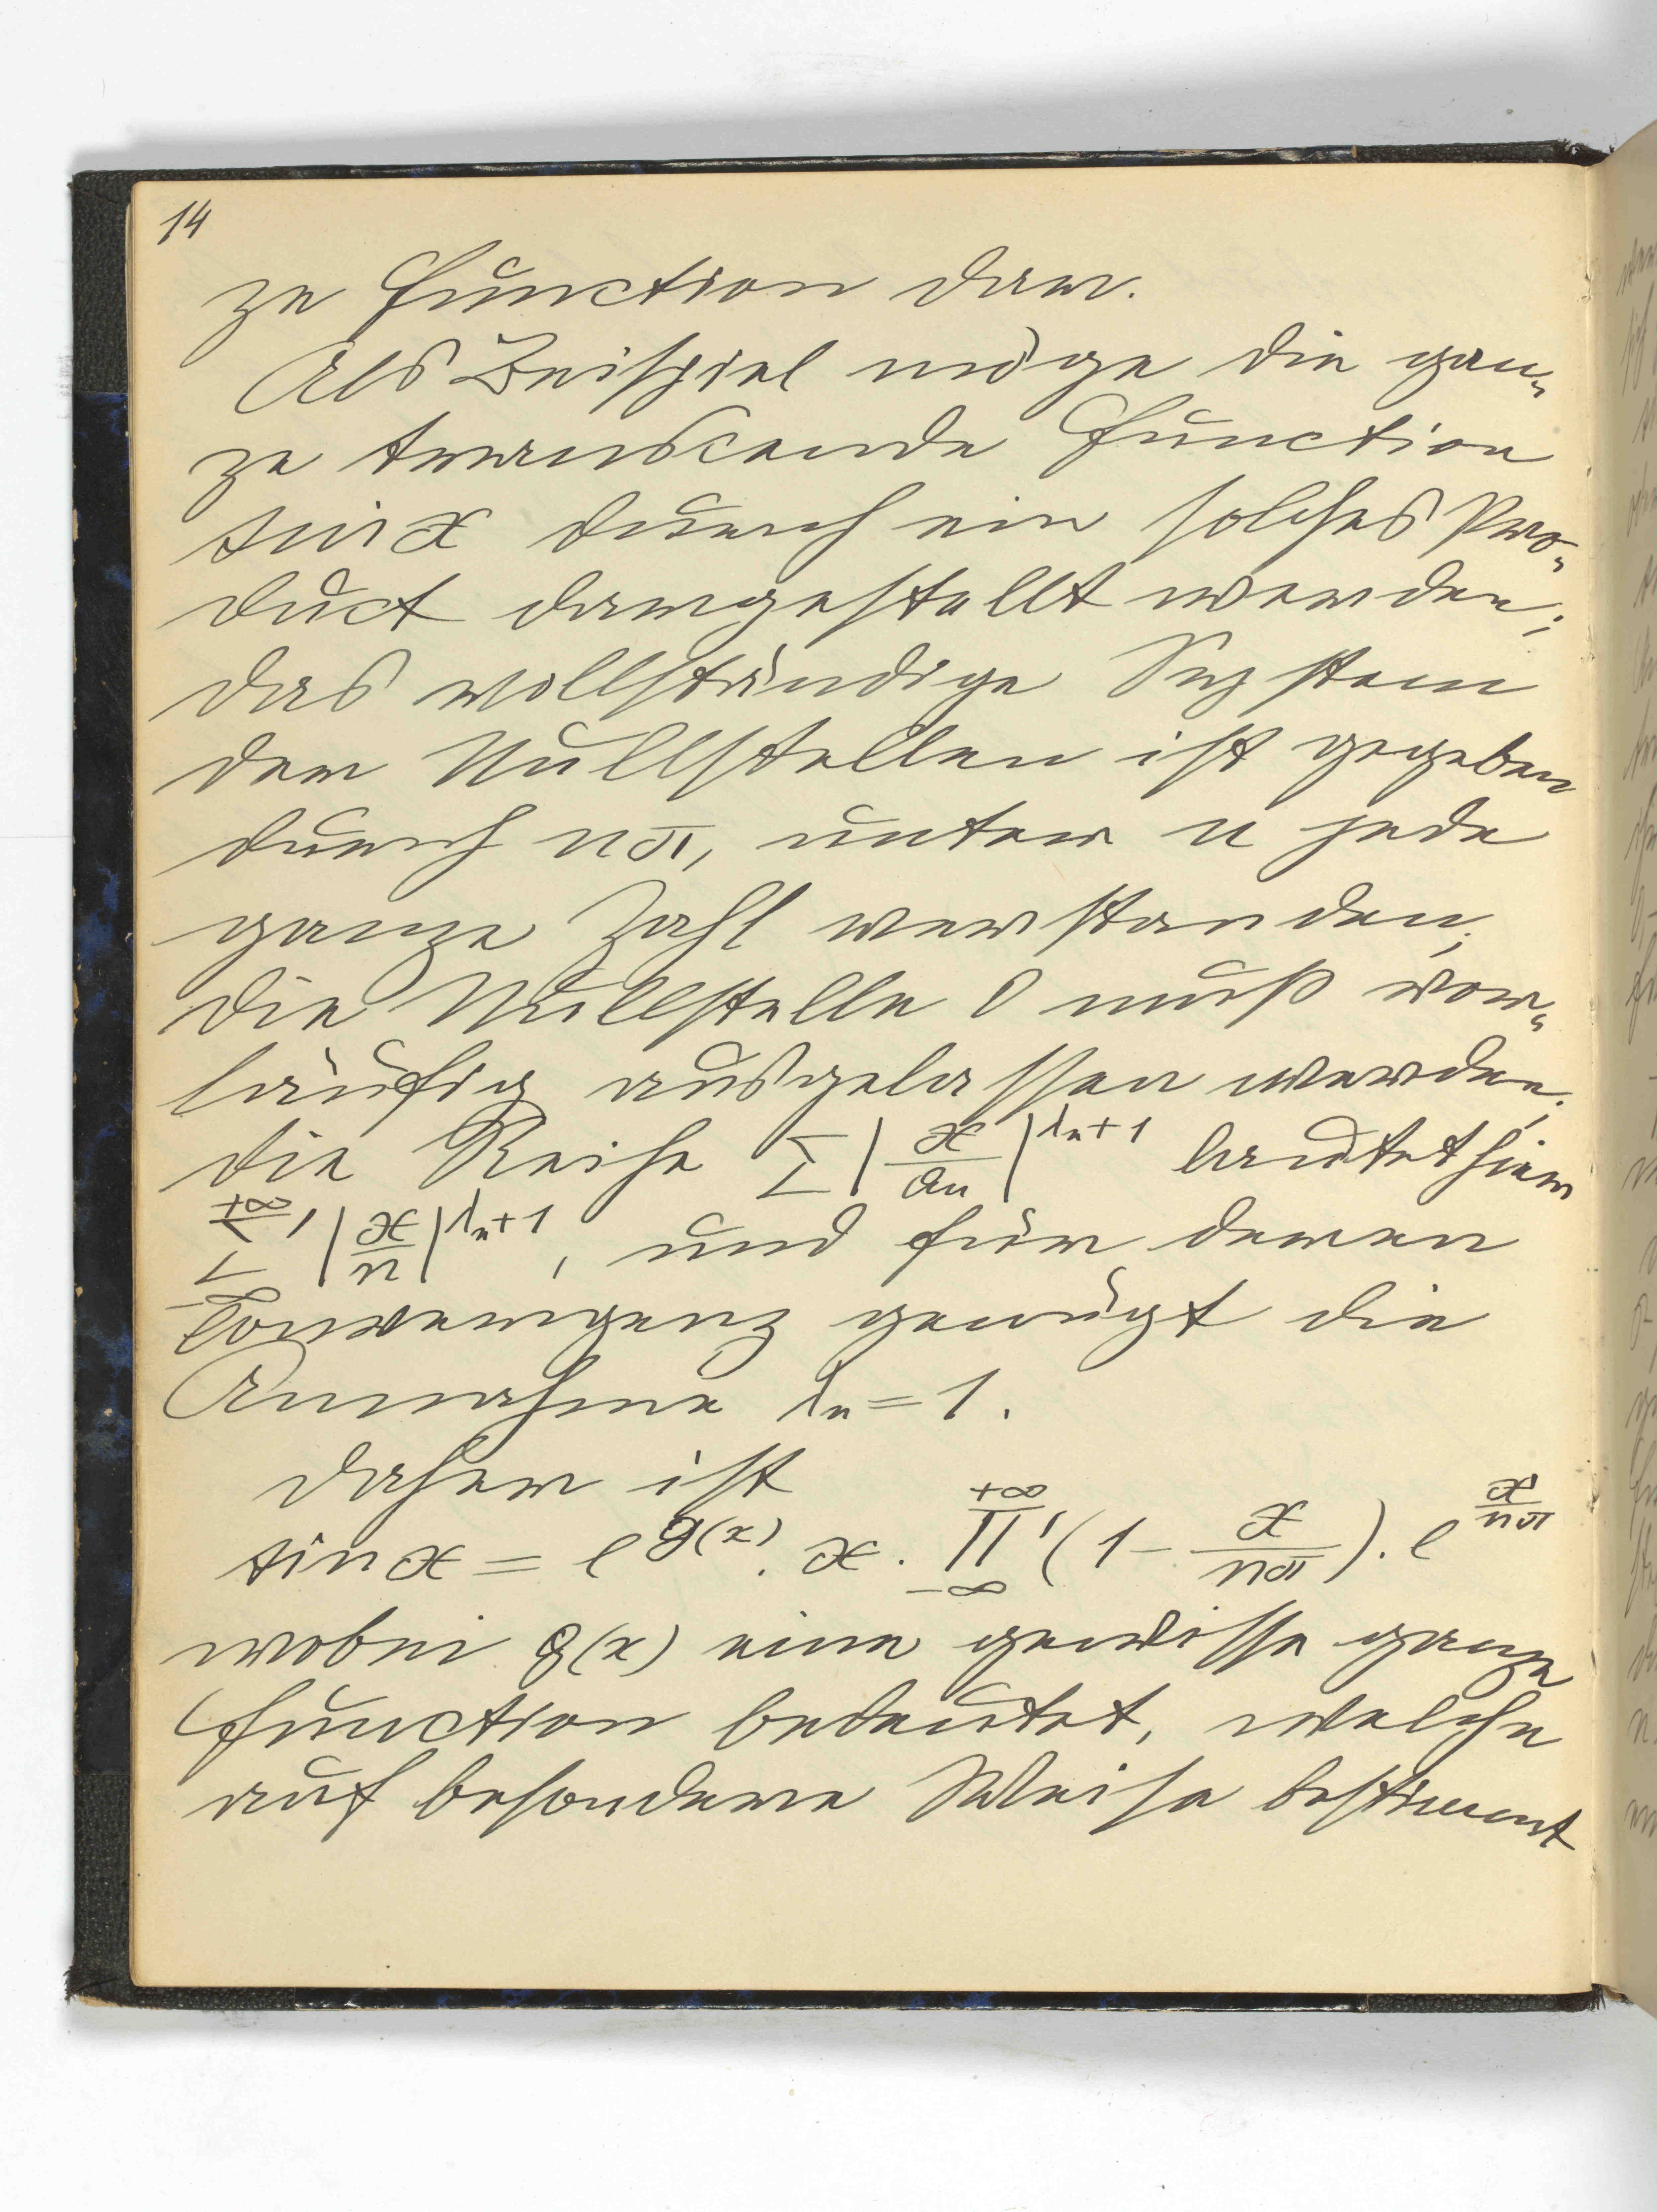 14
ze Function dar.
Als Beispiel möge die gan-
ze transcende Function
sin x durch ein solches Pro-
duct dargestellt werden;
das vollständige System
der Nullstellen ist gegeben
durch nπ, unter n jede
ganze Zahl verstanden;
die Nullstelle 0 muß vor-
läufig ausgelassen werden;
die Reihe ∑ |x/aₙ|^(λₙ+1) lautet hier
∑'_{-∞}^{+∞} |x/n|^(λₙ+1), und für deren
Convergenz genügt die
Annahme λₙ = 1.
Daher ist
sin x = e^{g(x)} . x . ∏'_{-∞}^{+∞} (1 - x/nπ) . e^{x/nπ}
wobei g(x) eine gewisse ganze
Function bedeutet, welche
auf besondere Weise bestimmt